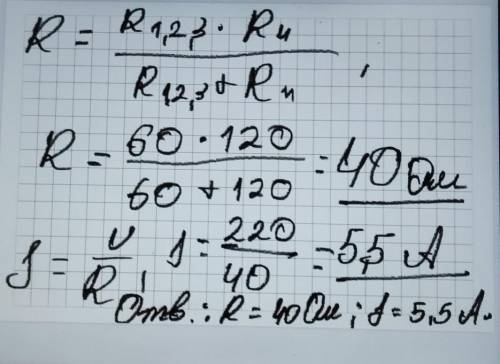 R = R1,2,3 · R4 / R1,2,3 + R4 ,
R = 60 · 120 / 60 + 120 = 40 Ом
J = U / R ; J = 220 / 40 = 5,5 А
Отв.: R = 40 Ом ; J = 5,5 А.